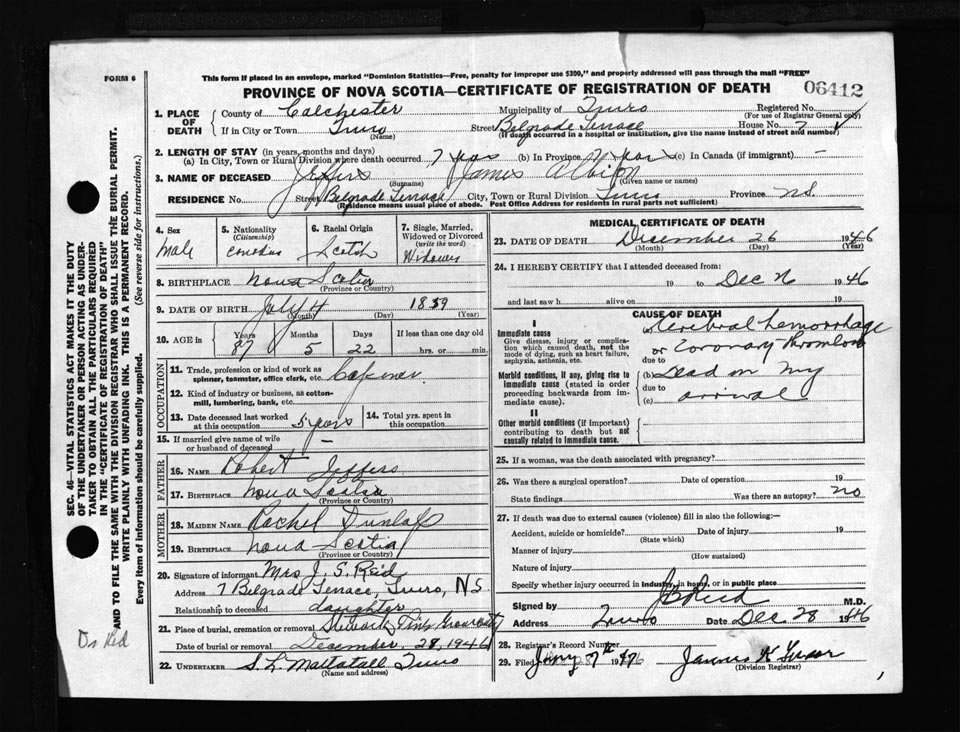 FORM 6
This form if placed in an envelope, marked "Dominion Statistics—Free, penalty for improper use $300," and properly addressed will pass through the mail "FREE"
PROVINCE OF NOVA SCOTIA—CERTIFICATE OF REGISTRATION OF DEATH 06412
1. PLACE OF DEATH County of Colchester Municipality of Truro Registered No.
(For use of Registrar General only)
If in City or Town Truro Street Belgrade Terrace House No. 7
(Name) (If death occurred in a hospital or institution, give the name instead of street and number)
2. LENGTH OF STAY (in years, months and days)
(a) In City, Town or Rural Division where death occurred 7 yrs (b) In Province (c) In Canada (if immigrant) –
3. NAME OF DECEASED Jeffers James
(Surname) (Given name or names)
RESIDENCE No. Street Belgrade Terrace City, Town or Rural Division Truro Province NS
(Residence means usual place of abode. Post Office Address for residents in rural parts not sufficient)
4. Sex Male
5. Nationality (Citizenship)
6. Racial Origin Scotch
7. Single, Married, Widowed or Divorced (write the word) Widower
8. BIRTHPLACE Nova Scotia
(Province or Country)
9. DATE OF BIRTH July 4 1859
(Month) (Day) (Year)
10. AGE in Years 87 Months 5 Days 22 If less than one day old hrs. or min.
OCCUPATION
11. Trade, profession or kind of work as spinner, teamster, office clerk, etc.
12. Kind of industry or business, as cotton-mill, lumbering, bank, etc.
13. Date deceased last worked at this occupation 5 years
14. Total yrs. spent in this occupation
15. If married give name of wife or husband of deceased –
FATHER
16. NAME Robert Jeffers
17. BIRTHPLACE Nova Scotia
(Province or Country)
MOTHER
18. MAIDEN NAME Rachel Dunlap
19. BIRTHPLACE Nova Scotia
(Province or Country)
20. Signature of informant Mrs J. S. Reid
Address 7 Belgrade Terrace, Truro, NS
Relationship to deceased daughter
21. Place of burial, cremation or removal
Date of burial or removal December 28, 1946
22. UNDERTAKER S. L. Mattatall Truro
(Name and address)
MEDICAL CERTIFICATE OF DEATH
23. DATE OF DEATH December 26 1946
(Month) (Day) (Year)
24. I HEREBY CERTIFY that I attended deceased from:
19 to Dec 26 1946
and last saw h alive on 19
CAUSE OF DEATH
I
Immediate cause
Give disease, injury or complication which caused death, not the mode of dying, such as heart failure, asphyxia, asthenia, etc.
(a) Cerebral hemorrhage
or Coronary thrombosis
due to
Morbid conditions, if any, giving rise to immediate cause (stated in order proceeding backwards from immediate cause).
(b) Dead on my
due to
(c) arrival
II
Other morbid conditions (if important) contributing to death but not causally related to immediate cause.
25. If a woman, was the death associated with pregnancy?
26. Was there a surgical operation? Date of operation 19
State findings Was there an autopsy? no
27. If death was due to external causes (violence) fill in also the following:—
Accident, suicide or homicide? Date of injury 19
(State which)
Manner of injury
(How sustained)
Nature of injury
Specify whether injury occurred in industry, in home, or in public place
Signed by Reid M.D.
Address Truro Date Dec 28 1946
28. Registrar's Record Number
29. Filed
(Division Registrar)
SEC. 46—VITAL STATISTICS ACT MAKES IT THE DUTY
OF THE UNDERTAKER OR PERSON ACTING AS UNDERTAKER TO OBTAIN ALL THE PARTICULARS REQUIRED
IN THE "CERTIFICATE OF REGISTRATION OF DEATH"
AND TO FILE THE SAME WITH THE DIVISION REGISTRAR WHO SHALL ISSUE THE BURIAL PERMIT.
WRITE PLAINLY WITH UNFADING INK. THIS IS A PERMANENT RECORD.
Every item of information should be carefully supplied. (See reverse side for instructions.)